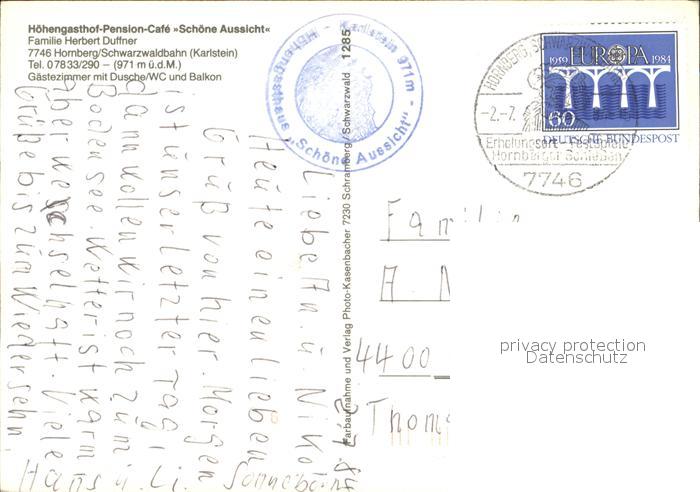 Höhengasthof-Pension-Café »Schöne Aussicht«
Familie Herbert Duffner
7746 Hornberg/Schwarzwaldbahn (Karlstein)
Tel. 07833/290 – (971 m ü.d.M.)
Gästezimmer mit Dusche/WC und Balkon
Höhengasthaus „Schöne Aussicht" - Karlstein 971 m -
Farbaufnahme und Verlag Photo-Kasenbacher 7230 Schramberg/Schwarzwald 1285
HORNBERG, SCHWARZWALD
-2.-7.
Erholungsort Festspiele
Hornberger Schießen
7746
EUROPA
1959 1984
60
DEUTSCHE BUNDESPOST
Liebe A. ü. Niko
Heüte einen lieben
Grüß von hier. Morgen
ist ünser letzter Tag,
dann wollen wir noch züm
Bodensee. Wetter ist warm
aber wechselhaft. Viele
Grüße bis züm Wiedersehn.
Hans ü. Li.
Familie
A.
4400
privacy protection
Datenschutz